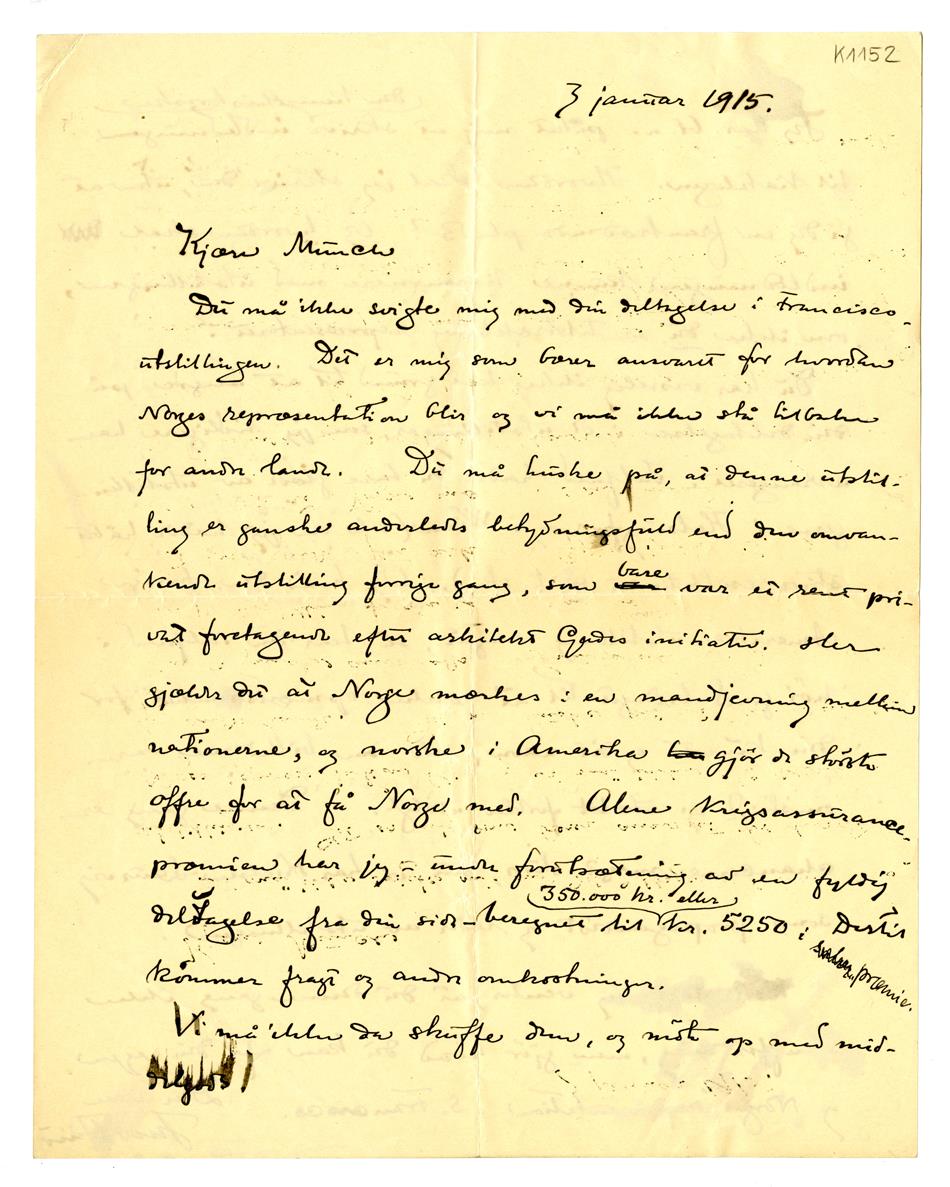 K1152
3 januar 1915.
Kjære Munch
Du må ikke svigte mig med din deltagelse i Francisco-
utstillingen. Det er mig som bærer ansvaret for hvordan
Norges repræsentation blir og vi må ikke stå tilbake
for andre lande. Du må huske på, at denne utstil-
ling er ganske anderledes betydningsfuld end den omvan-
kende utstilling forrige gang, som bare var et rent pri-
vat foretagende efter arkitekt Gades initiativ. Her
gjælder det at Norge mærkes i en mandjevning mellem
nationerne, og norske i Amerika gjör de störste
offre for at få Norge med. Alene krigsassurance-
præmien har jeg – under forutsætning av en fyldig
deltagelse fra din side – beregnet til 350.000 kr. eller kr. 5250 i præmie. Dertil
kommer fragt og andre omkostninger.
Vi må ikke da skuffe dem, og möte op med mid-